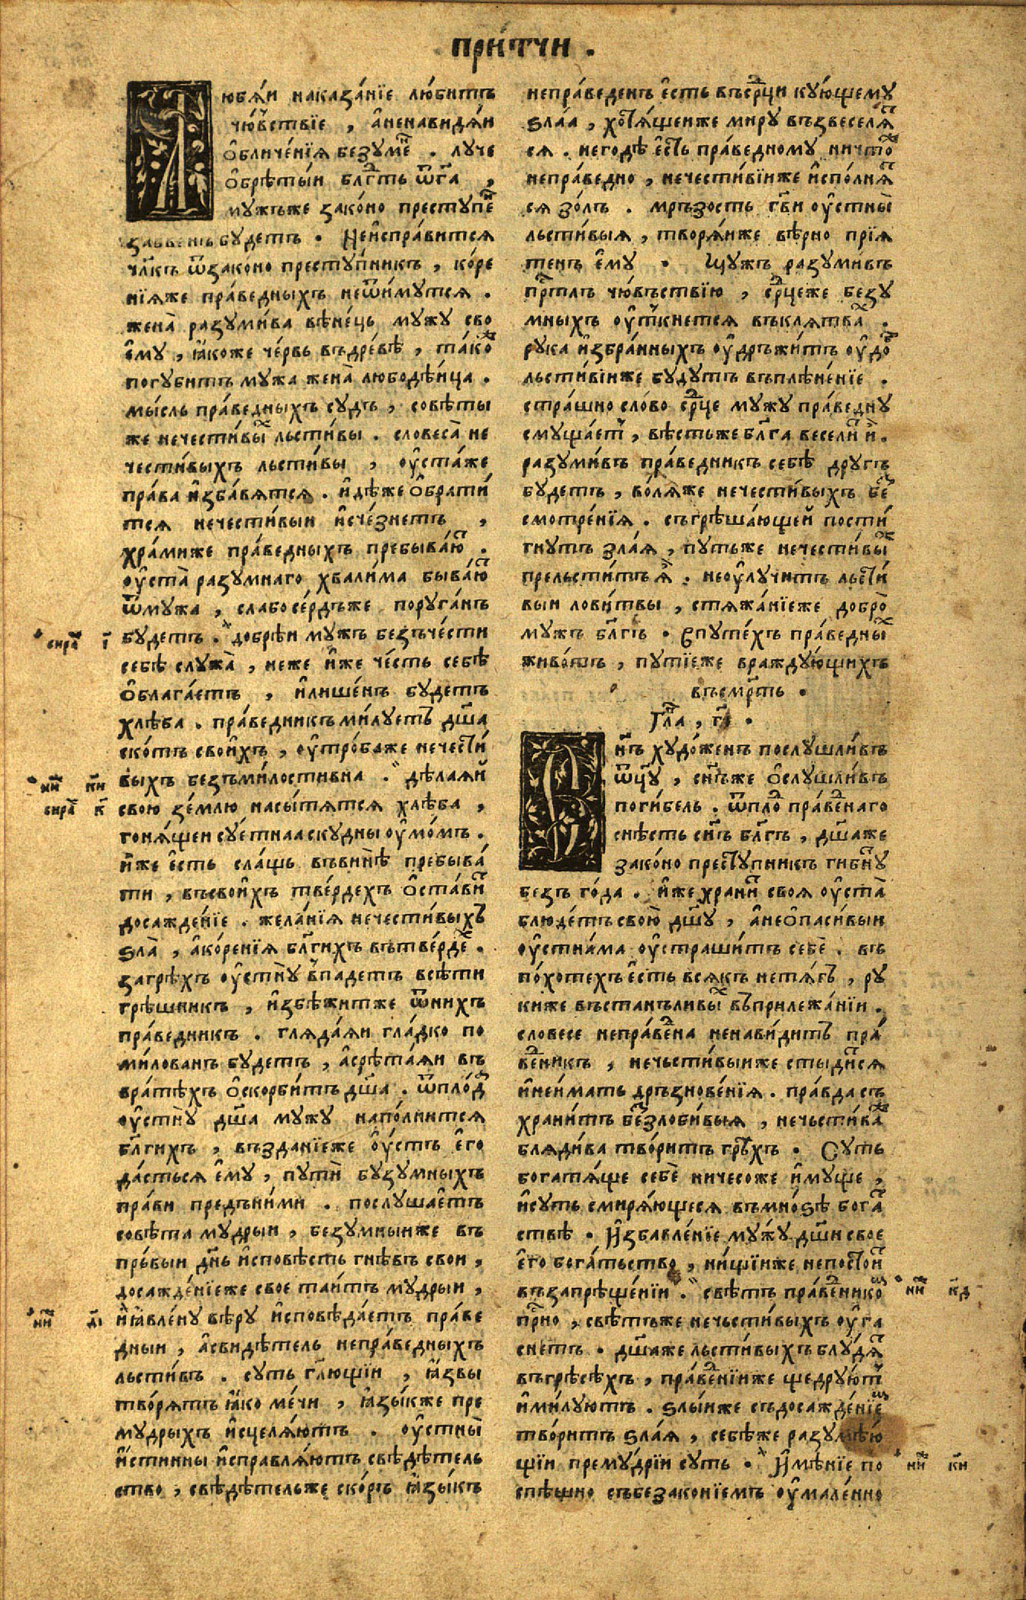 притчи .
Любѧ́и наказа́нїе лю́битъ
чю́вствїе , а҆ненави́дѧи
ѡ҆бличе́нїѧ безу́ме . лу́че
ѡ҆брѣ́тыи блг҃ть ѿг҃а ,
му́жьже зако́но престу́пе
забве́нъ бу́детъ . Неи҆спра́витсѧ
чл҃къ ѿзако́но престу́пникъ , ко́ре
нїѧже пра́ведныхъ неѿи́мутсѧ .
жена̀ разуми́ва вѣне́ць му́жу сво
е҆му , ꙗ҆́коже че́рвь въдре́вѣ , та́ко
погуби́тъ му́жа жена̀ любодѣ́ица .
мы́сль пра́ведныхъ суды̀ , совѣ́ты
же нечести́вы льсти́вы . словеса̀ не
чести́выхъ льсти́вы , оу҆ста́же
пра́ва и҆зба́вѧтсѧ . и҆дѣ́же ѡ҆брати́
тсѧ нечести́выи и҆сче́знетъ ,
хра́миже пра́ведныхъ пребыва́ю .
оу҆ста̀ разу́мнаго хвали́ма быва́ю
ѿму́жа , слабосе́рдъже пору́ганъ
бу́детъ . добрѣ́и мужъ безче́сти
себѣ̀ служа̀ , не́же и҆́же че́сть себѣ̀
ѡ҆блага́етъ , и҆лише́нъ бу́детъ
хлѣ́ба . пра́ведникъ ми́луетъ дш҃а
ско́тъ свои́хъ , оу҆тро́баже нечести́
выхъ безми́лостивна . дѣ́лаѧй
свою̀ зе́млю насы́тѧтсѧ хлѣ́ба ,
гонѧ́щеи су́етнаа ску́дны оу҆мо́мъ .
и҆́же є҆́сть сла́щь въвинѣ̀ пребыва́
ти , въсвои́хъ тве́рдехъ ѡ҆ста́ви
досажде́нїе . жела́нїѧ нечести́выхъ
ѕла̀ , а҆ко́ренїѧ блг҃ихъ вътве́рде .
загрѣ́хъ оу҆стну̀ впаде́тъ всѣ́ти
грѣ́шникъ , и҆збѣжи́тже ѿни́хъ
пра́ведникъ . глѧ́даѧи гла́дко по
ми́лованъ бу́детъ , а҆срѣ́таѧи въ
вра́тѣхъ ѡ҆скорби́тъ дш҃а . ѿпло́д
оу҆стну̀ дш҃а му́жу напо́лнитсѧ
блг҃ихъ , възда́нїеже оу҆́стъ є҆го
да́стьсѧ є҆му̀ , путїѐ бузу́мныхъ
пра́ви предъни́ми . послу́шаетъ
совѣ́та му́дрыи , безу́мныиже въ
пе́рвыи дн҃ь и҆сповѣ́сть гнѣ́въ сво́и ,
досажде́нїеже своѐ таи́тъ му́дрыи ,
и҆ꙗ҆вле́ну вѣ́ру и҆сповѣ́даетъ пра́ве
дныи , а҆свидѣ́тель непра́ведныхъ
льсти́въ . су́ть гл҃ющїи , ꙗ҆́звы
творѧ́тъ ꙗ҆́ко ме́чи , ꙗ҆зы́кже пре
му́дрыхъ и҆сцелѧ́ютъ . оу҆стны̀
и҆́стинны и҆справлѧ́ютъ свѣдѣ́тель
ство , свѣдѣ́тельже ско́ръ ꙗ҆зы́къ
непра́веденъ є҆́сть въсрц҃и кую́щему
ѕла́а , хотѧ́щеиже ми́ру възвеселѧ́
сѧ . него́дѣ є҆́сть пра́ведному ничто́
непра́ведно , нечести́вїиже и҆спо́лнѧ
сѧ зо́лъ . мръ́зость гв҃и оу҆стны̀
льсти́выѧ , творѧ́иже вѣ́рно прїѧ́
тенъ є҆му . Му́жъ разуми́въ
прт҃лъ чю́въствїю , срц҃еже безу́
мныхъ оу҆́ткнетсѧ въклѧ́тва .
рука̀ и҆збра́нныхъ оу҆дръжи́тъ оу҆до́
льсти́вїиже бу́дутъ въплѣне́нїе .
стра́шно сло́во срц҃е му́жу пра́ведну
смуща́етъ , вѣ́стьже блг҃а весели́ и҆́ .
разуми́въ пра́ведникъ себѣ̀ дру́гъ
бу́детъ , во́лѧже нечести́выхъ бе
смотре́нїѧ . съгрѣша́ющей пости́
гнутъ зла́ѧ , пу́тьже нечести́вы
прельсти́тъ ѧ҆̀ . неоу҆лу́читъ льсти́
выи лови́твы , стѧжа́нїеже добро̀
му́жъ блг҃ъ . Впуте́хъ пра́ведны
живо́тъ , путїе́же вражду́ющихъ
въсме́рть .
Гла , гі .
Сы́нъ худо́женъ послушли́въ
ѿц҃у , сн҃ъже ѡ҆слушли́въ
поги́бель . ѿпло пра́веднаго
снѣ́сть сн҃ъ блг҃ъ , дш҃аже
зако́но престу́пникъ ги́бну
безъ го́да . и҆́же храни́ своѧ̀ оу҆ста̀
блюде́тъ свою̀ дш҃у , а҆неѡ҆па́сивыи
оу҆стна́ма оу҆страши́тъ себѐ . въ
по́хотехъ є҆́сть всѧ́къ нетѧ́гъ , ру
киже въстанъли́вы въприлежа́нїи .
словесѐ непра́ведна ненави́дитъ пра́
ведникъ , нечьсти́выиже стыди́сѧ
и҆неи́мать дръзнове́нїѧ . пра́вда съ
храни́тъ безло́бивыѧ , нечьсти́ва
блѧди́ва твори́тъ грѣхъ . Су́ть
богатѧ́ще себѐ ничесо́же и҆му́ще ,
и҆су́ть смирѧ́ющесѧ въмно́ѕѣ бога́
ствѣ . И҆збавле́нїе му́жу дш҃и свое
є҆го бога́тьство , ни́щїиже непостои́
въза́прѣще́нїи . свѣ́тъ пра́веднико
при́сно , свѣ́тъже нечьсти́выхъ оу҆га
сне́тъ . дш҃аже льсти́выхъ блу́дѧ
въгрѣсѣ́хъ , пра́веднїиже щедру́ют
и҆ми́луютъ . ѕлы́иже съдосажде́нїе
твори́тъ ѕла́ѧ , себѣ́же разумѣ́ю
щїи прему́дрїи су́ть . И҆мѣ́нїе по
спѣ́шно събеззако́нїемъ оу҆мале́нно